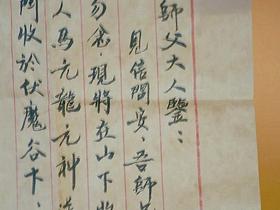 師父大人鑒：
見信問安，吾師
勿念，現將在山下
人馬元龍元神
收於伏魔谷下，